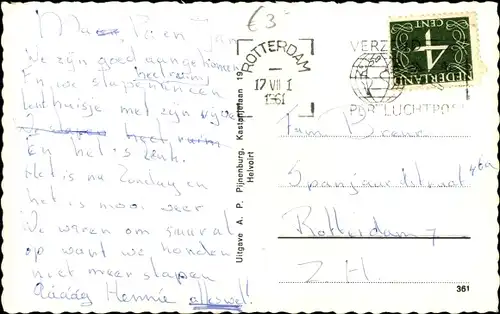 €3-
Ma Pien Jan
We zijn goed aangekomen
En we slapen in een heel ruim
tenthuisje met zijn vijven
We slapen heel ruim
En het is leuk.
Het is nu Zondag en
het is mooi weer
We waren om
op want we konden
niet meer slapen
Dááág Hennie alles wel!
Uitgave A. P. Pijnenburg, Kastanjelaan 19
Helvoirt
ROTTERDAM
17 VII 1
1961
VERZ
PER LUCHTPOST
NEDERLAND
4
CENT
Fam
Spanjaardstraat 46a
Rotterdam 7
Z.H.
361